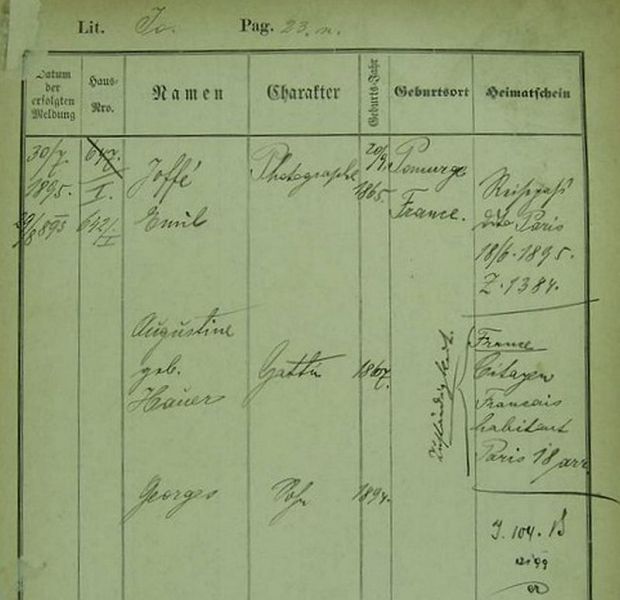 Lit. Jo. Pag. 23. n.
Datum der erfolgten Meldung
Haus-Nro.
Namen
Charakter
Geburts-Jahr
Geburtsort
Heimatschein
30/7. 1895.
647. I.
Joffé
Emil
Photographe
20/9. 1865.
Pomurge
France.
Reisepass
dto Paris
18/6. 1895.
Z. 1384.
29/8 895
642/I
Augustine
geb.
Hauer
Gattin
1867.
Zuständigkeit.
France
Citoyen
Francais
habitant
Paris 18 arr
Georges
Sohn
1894.
J. 104. B